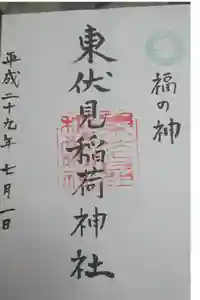 福の神
東伏見稲荷神社
平成二十九年 七月一日